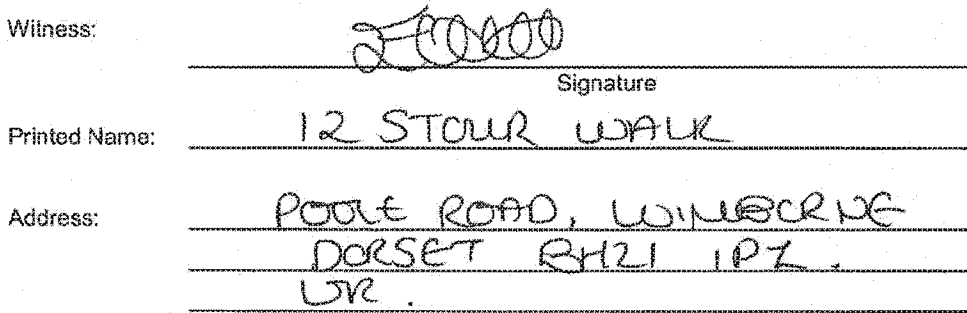 Witness:
Signature
Printed Name: 12 STOUR WALK
Address: POOLE ROAD, WIMBORNE
DORSET BH21 1PZ.
UK.